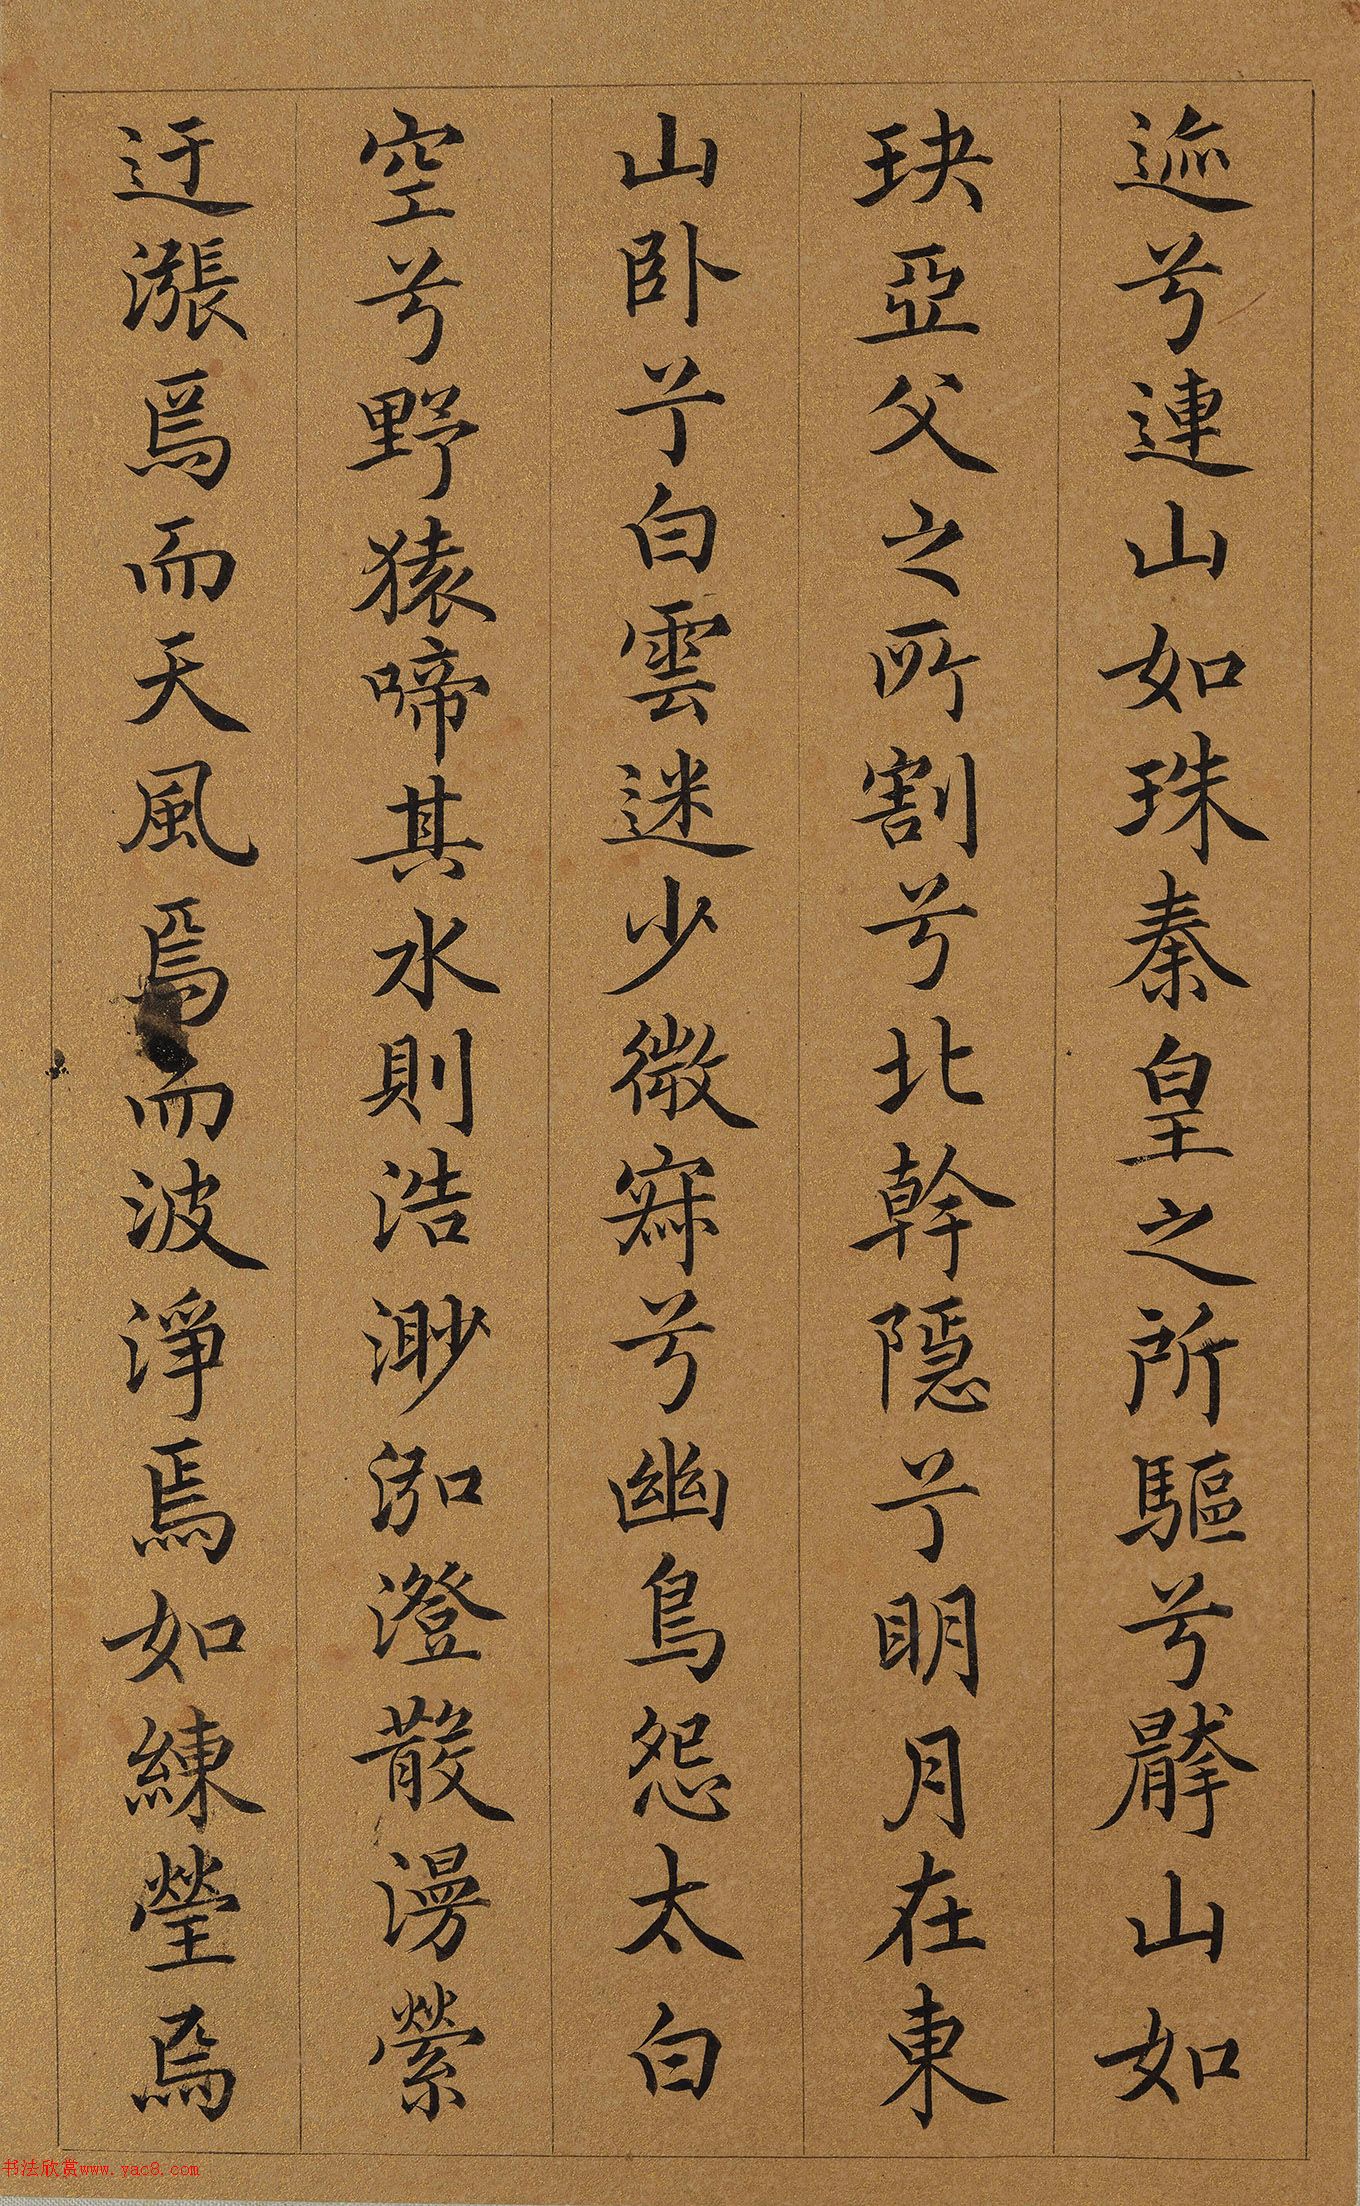 迹兮連山如珠秦皇之所驅兮辭山如
玦亞父之所割兮北幹隱兮明月在東
山卧兮白雲迷少微寂兮幽鳥怨太白
空兮野猿啼其水則浩渺泓澄散漫縈
迂漲焉而天風焉而波淨焉如練瑩焉
书法欣赏www.yac8.com